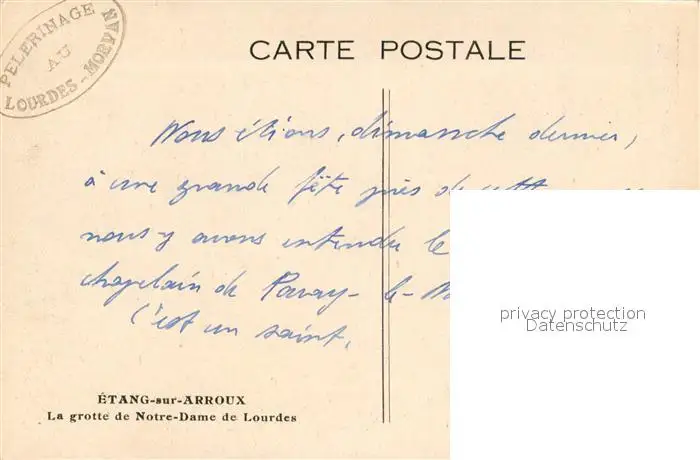 PELERINAGE
AU
LOURDES-MORVAN
CARTE POSTALE
Nous étions, dimanche dernier,
à une grande fête près de
nous y avons entendu le
chapelain de Paray-le-
C'est un saint.
privacy protection
Datenschutz
ÉTANG-sur-ARROUX
La grotte de Notre-Dame de Lourdes